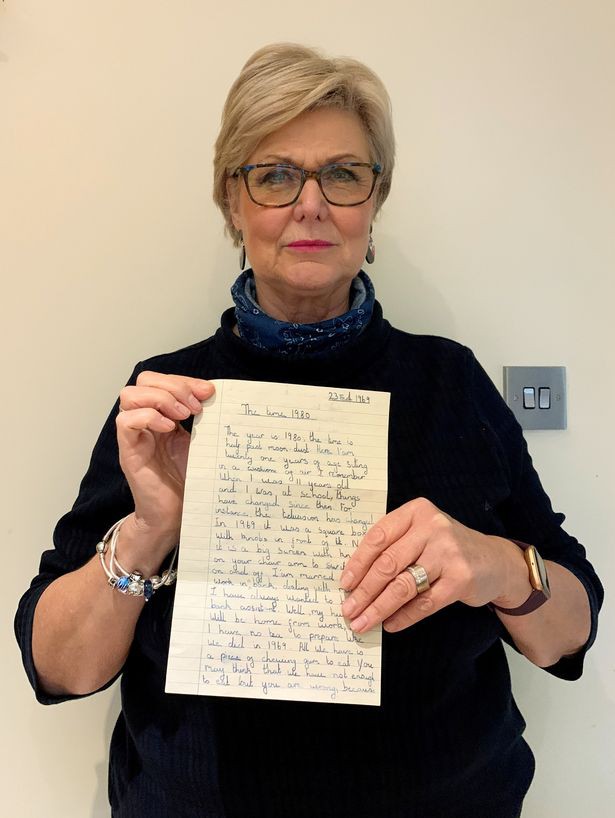 23rd 1969
The time 1980
The year is 1980. the time is
half past moon dust Here I'am
twenty one years of age siting
in a cushione of air I remember
When I was 11 years old
and I was at school, things
have changed since then. For
instance the television has changed
In 1969 it was a square box
with knobs in front of it. N
it is a big screen with
on your chair arm to
on and off. I am married
work in bank, dealing with
I have always wanted to
bank assistant Well my hu
will be home from work,
I have no tea to prepare like
we did in 1969. All we have is
a piece of chewing gum to eat You
may think that we have not enough
to eat but you are wrong, because